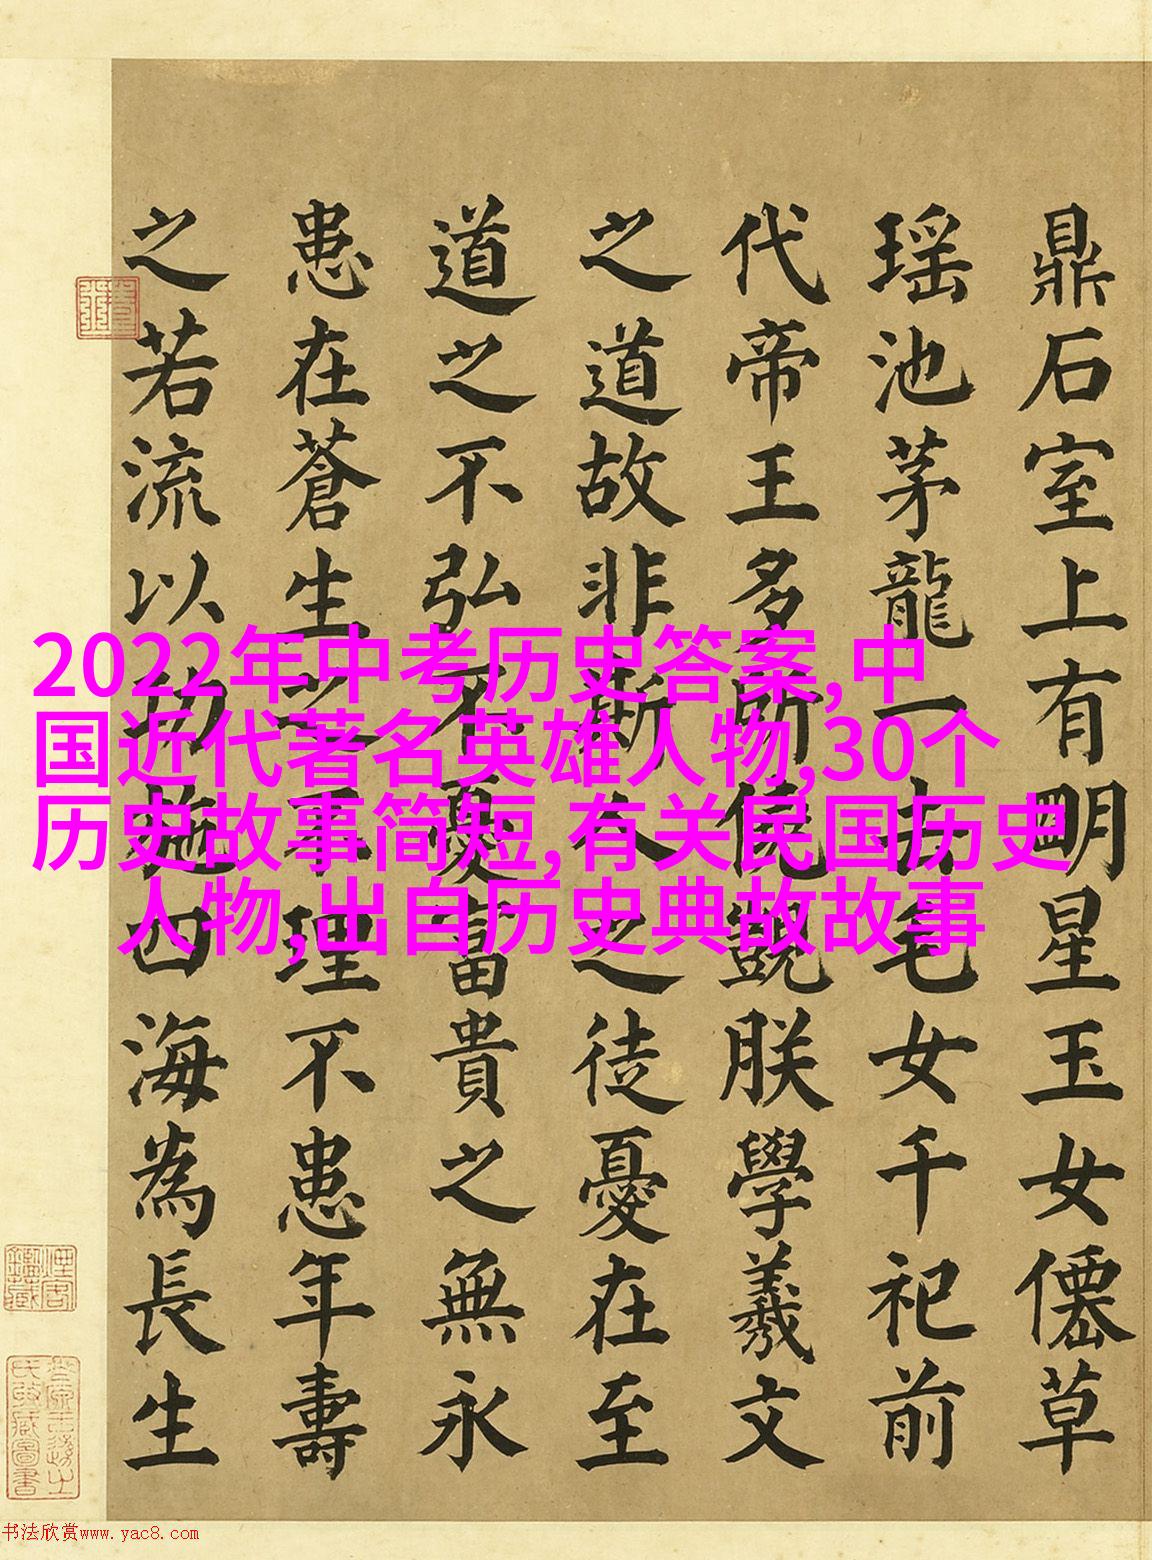 鼎石室上有明星玉女僊草
瑶池茅龍一去毛女千祀前
代帝王多所僥覬朕學羲文
之道故非斯人之徒憂在至
道之不弘不憂富貴之無永
患在蒼生之不理不患年壽
之若流以功施四海為長生
2022年中考历史答案,中
国近代著名英雄人物,30个
历史故事简短,有关民国历史
人物,出自历史典故故事
书法欣赏www.yac8.com